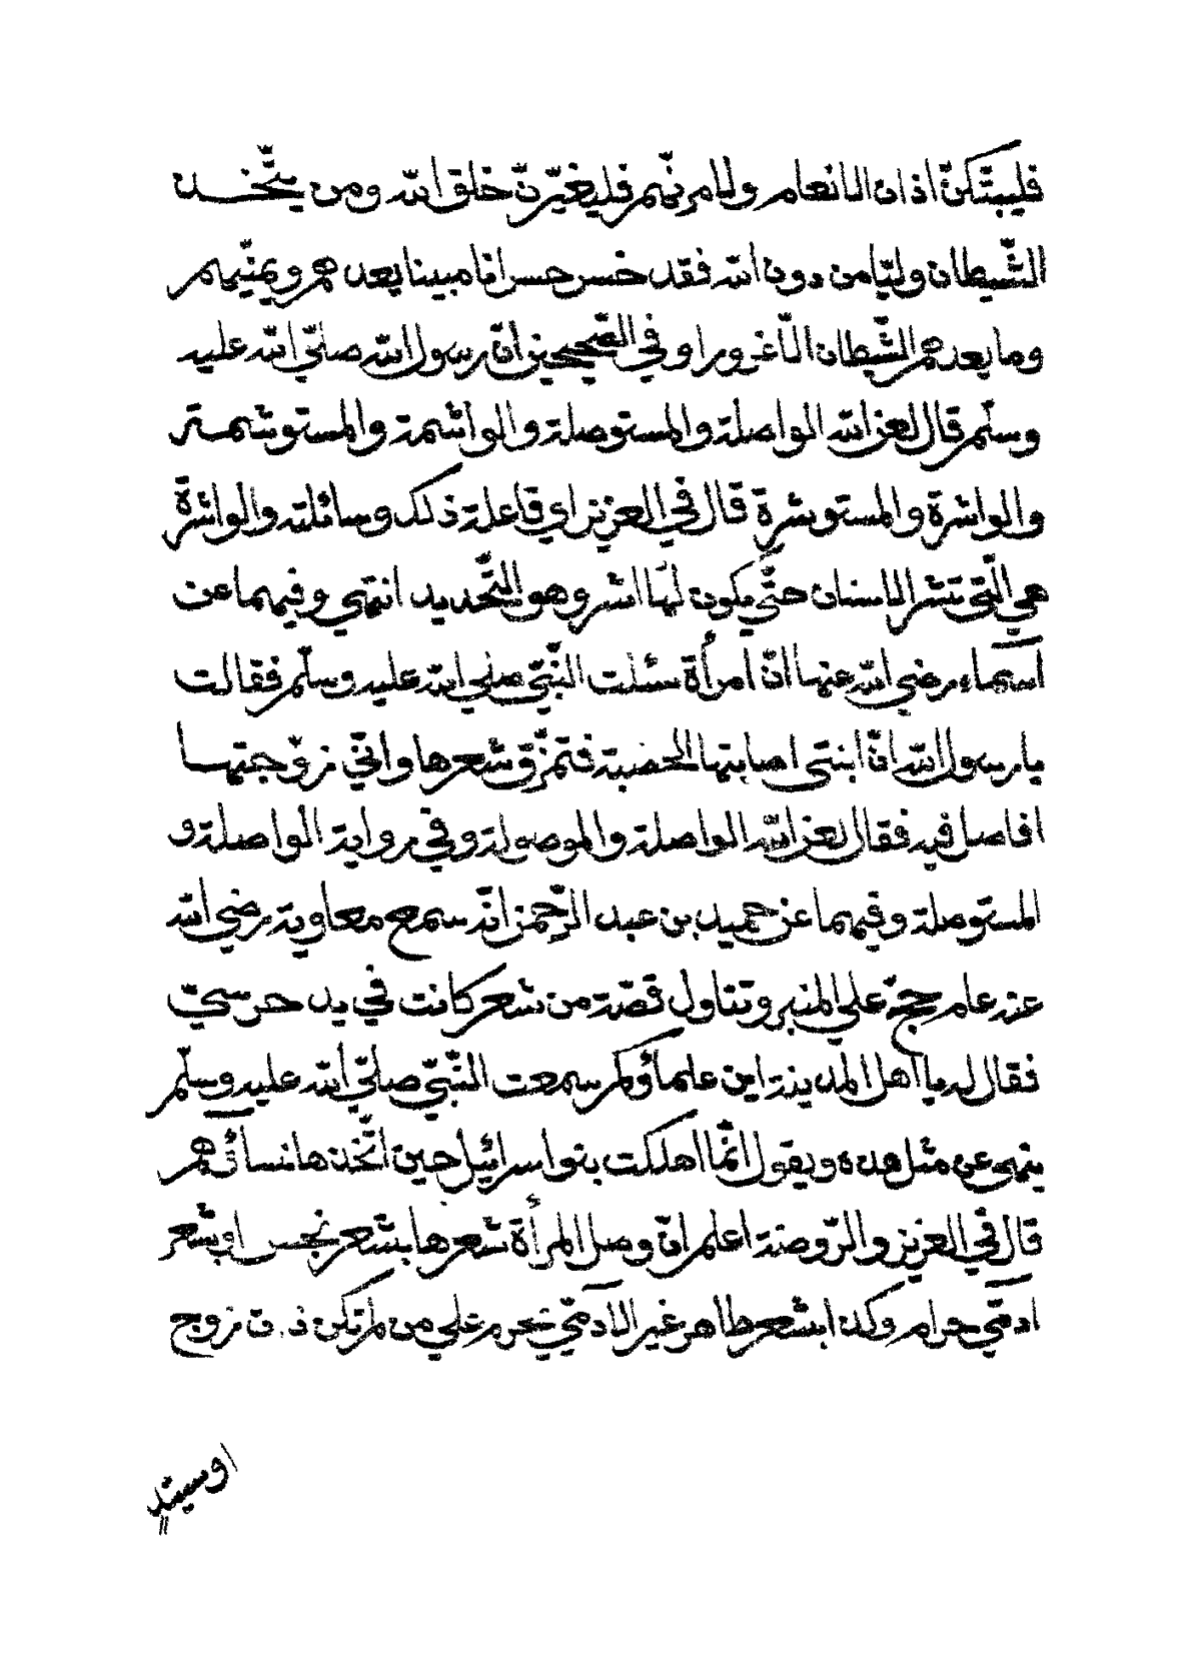 فليبتّكنّ اذان الانعام ولامرنّهم فليغيّرنّ خلق الله ومن يتّخذ
الشّيطان وليّا من دون الله فقد خسر خسرانا مبينا يعدهم ويمنّيهم
وما يعدهم الشّيطان الّا غرورا وفي الصّحيحين أنّ رسول الله صلّي الله عليه
وسلّم قال لعن الله الواصلة والمستوصلة والواشمة والمستوشمة
والواشرة والمستوشرة قال في العزيز اي فاعلة ذلك وسائلته والواشرة
هي الّتي تشر الاسنان حتّي يكون لها اشر وهو التّحديد انتهي وفيهما عن
أسماء رضي الله عنها انّ امرأة سئلت النّبيّ صلي الله عليه وسلّم فقالت
يا رسول الله انّ ابنتي اصابتها الحصبة فتمزّق شعرها وانّي زوّجتها
افاصل فيه فقال لعن الله الواصلة والموصولة وفي رواية الواصلة و
المستوصلة وفيهما عن حميد بن عبد الرّحمن انّه سمع معاوية رضي الله
عنه عام حجّ علي المنبر وتناول قصّة من شعر كانت في يد حرسيّ
فقال له يا اهل المدينة اين علماؤكم سمعت النّبيّ صلّي الله عليه وسلّم
ينهي عن مثل هذه ويقول انّما اهلكت بنو اسرائيل حين اتّخذها نسائهم
قال في العزيز والرّوضة اعلم انّ وصل المرأة شعرها بشعر نجس او بشعر
ادمّي حرام وكذا بشعر طاهر غير الادميّ يحرم علي من لم تكن ذات زوج
او سيّد